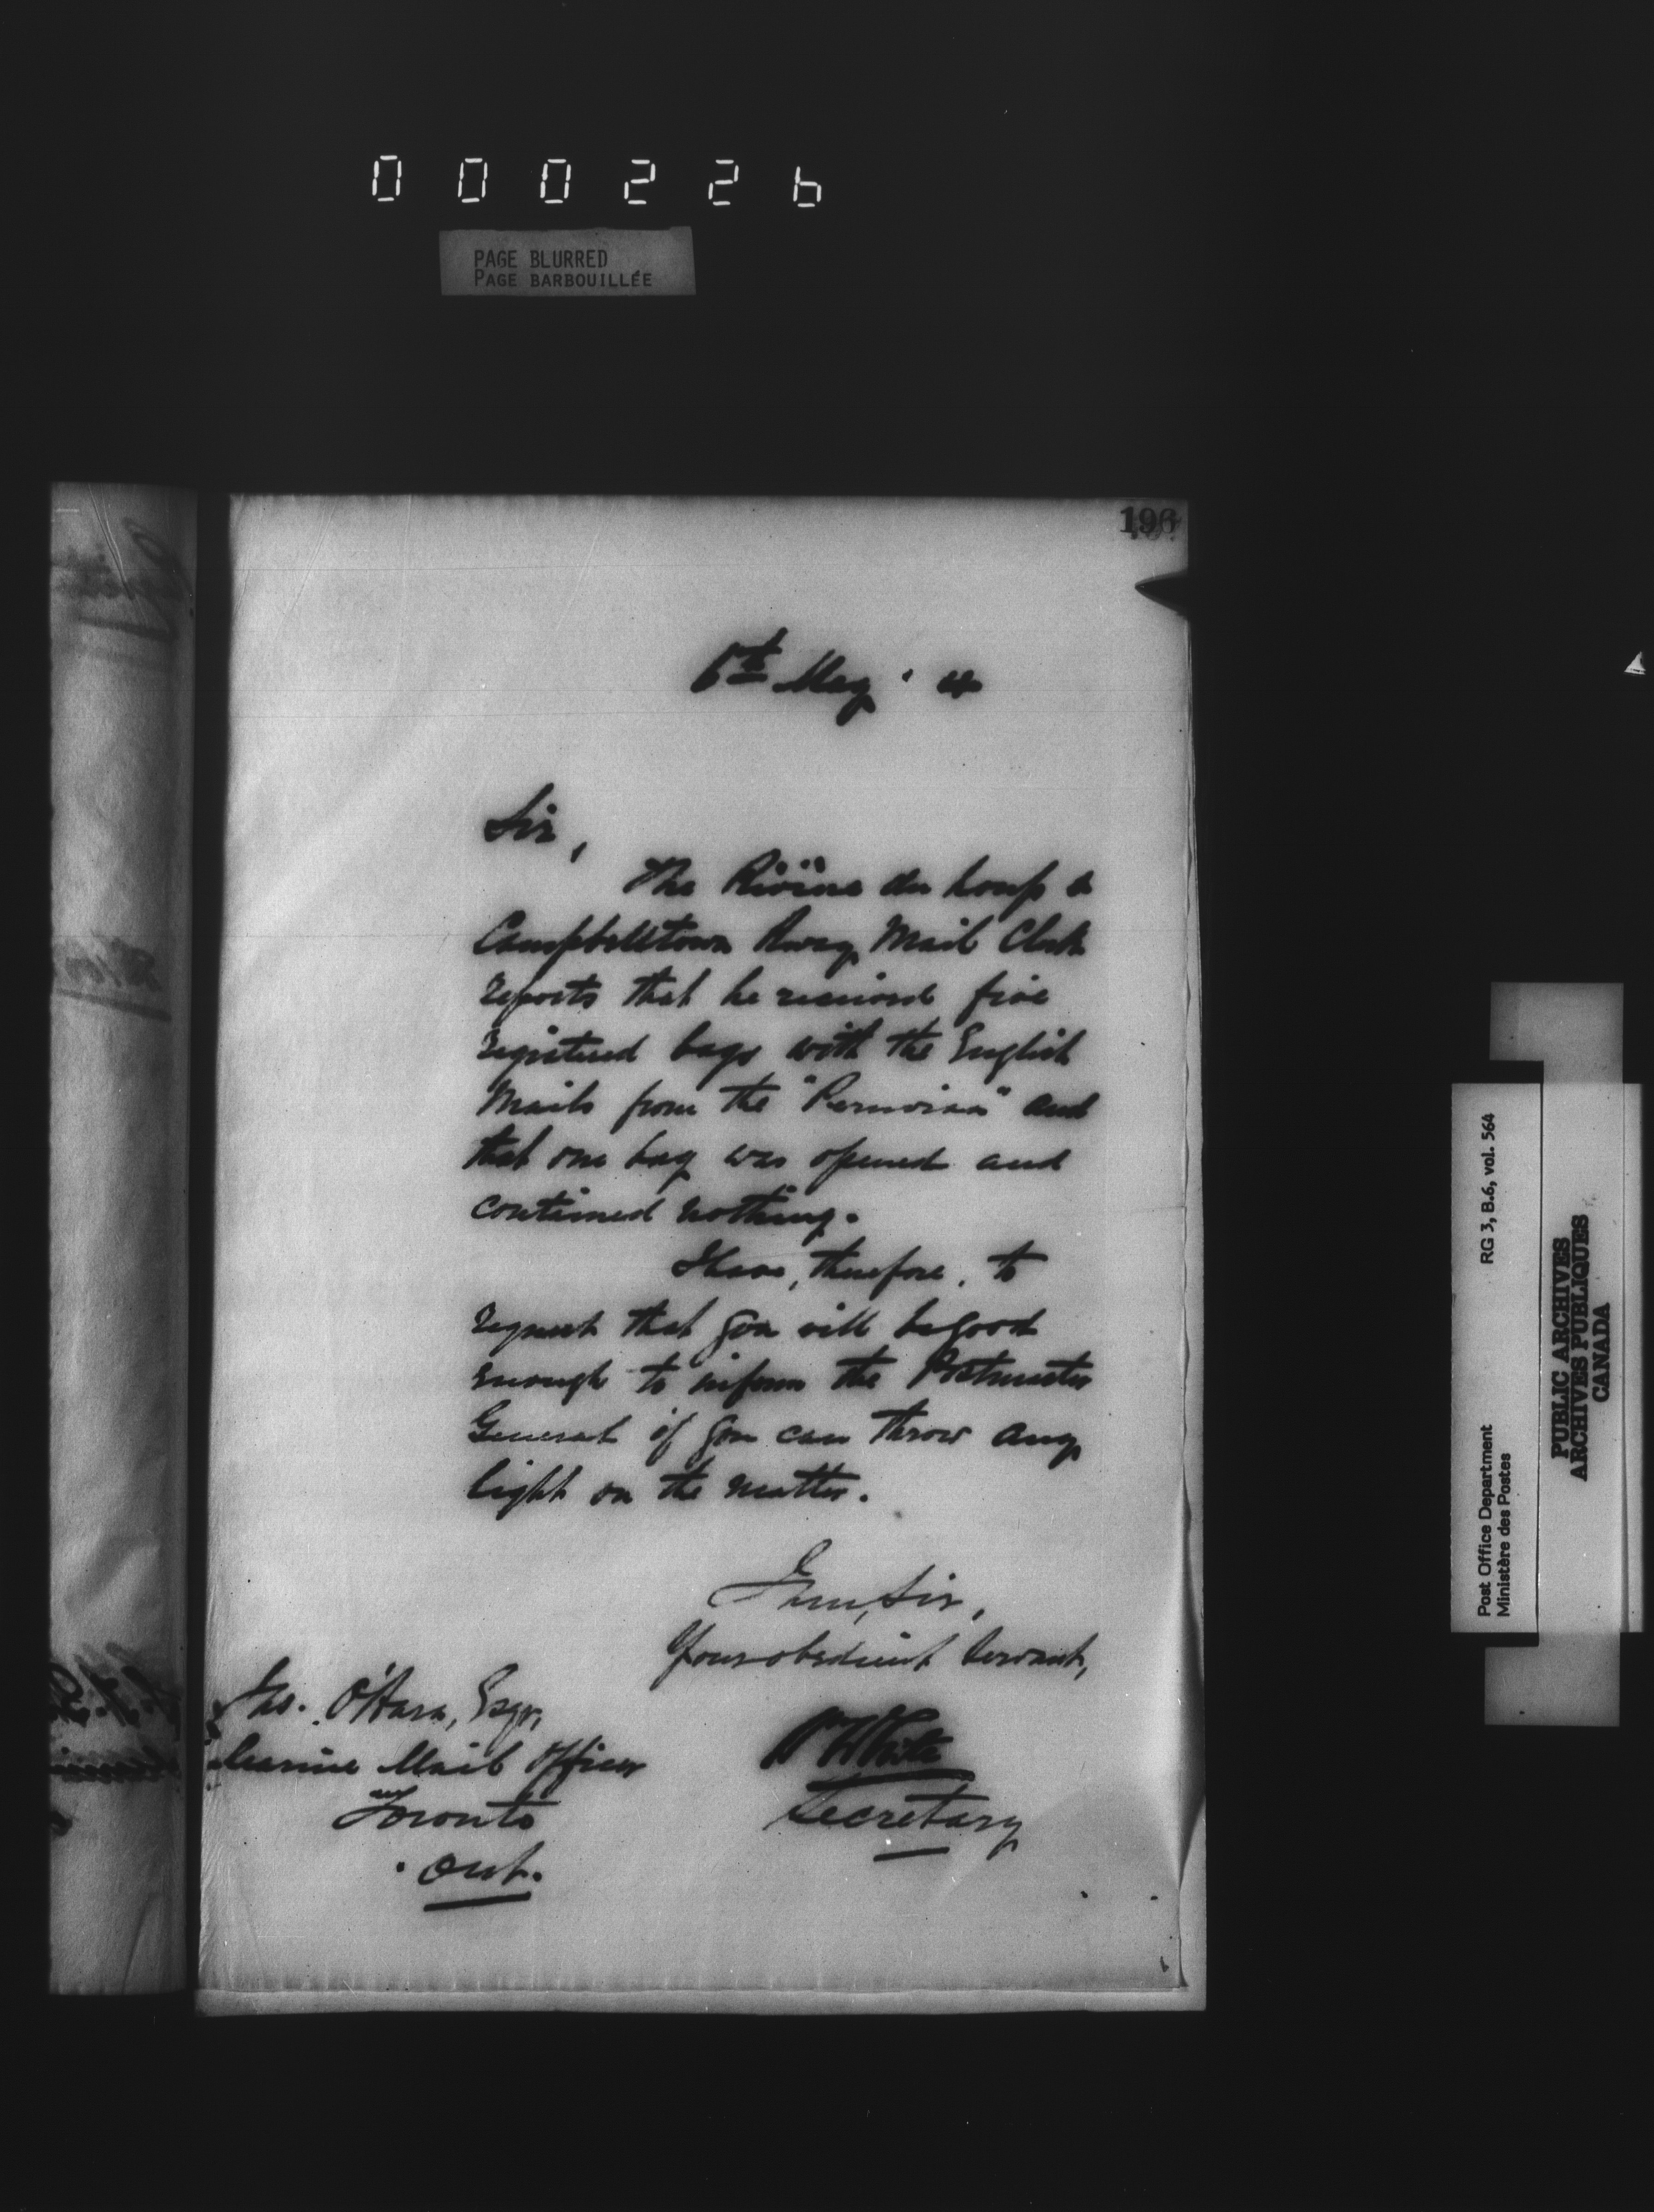 000226
PAGE BLURRED
PAGE BARBOUILLÉE
196
6th May 4
Sir,
The Rivière du Loup &
Campbelltown Rway Mail Clerk
reports that he received five
registered bags with the English
Mails from the "Peruvian" and
that one bag was opened and
contained nothing.
I have, therefore, to
request that you will be good
enough to inform the Postmaster
General if you can throw any
light on the matter.
I am, Sir,
Your obedient Servant,
Wm White
Secretary
O'Hara, Esqr,
Marine Mail Officer
Toronto
Ont.
Post Office Department
Ministère des Postes
RG 3, B.6, vol. 564
PUBLIC ARCHIVES
ARCHIVES PUBLIQUES
CANADA